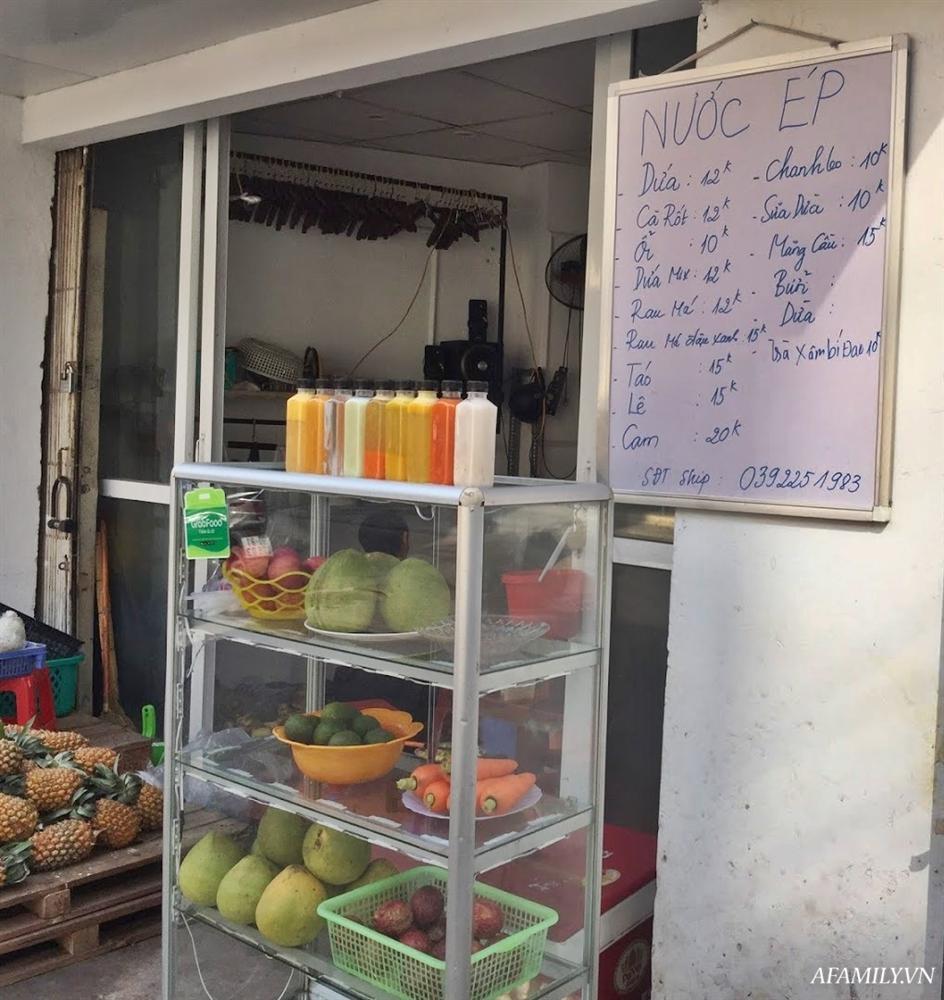 NƯỚC ÉP
- Dứa : 12k
- Cà Rốt : 12k
- Ổi : 10k
- Dứa Mix : 12k
- Rau Má : 12k
- Rau Má Đậu xanh 15k
- Táo : 15k
- Lê : 15k
- Cam : 20k
- Chanh leo : 10k
- Sữa Dừa : 10k
- Mãng Cầu : 15k
- Bưởi :
- Dừa :
- Trà Xâm bí Đao 10k
SĐT Ship : 0392251983
GrabFood
AFAMILY.VN